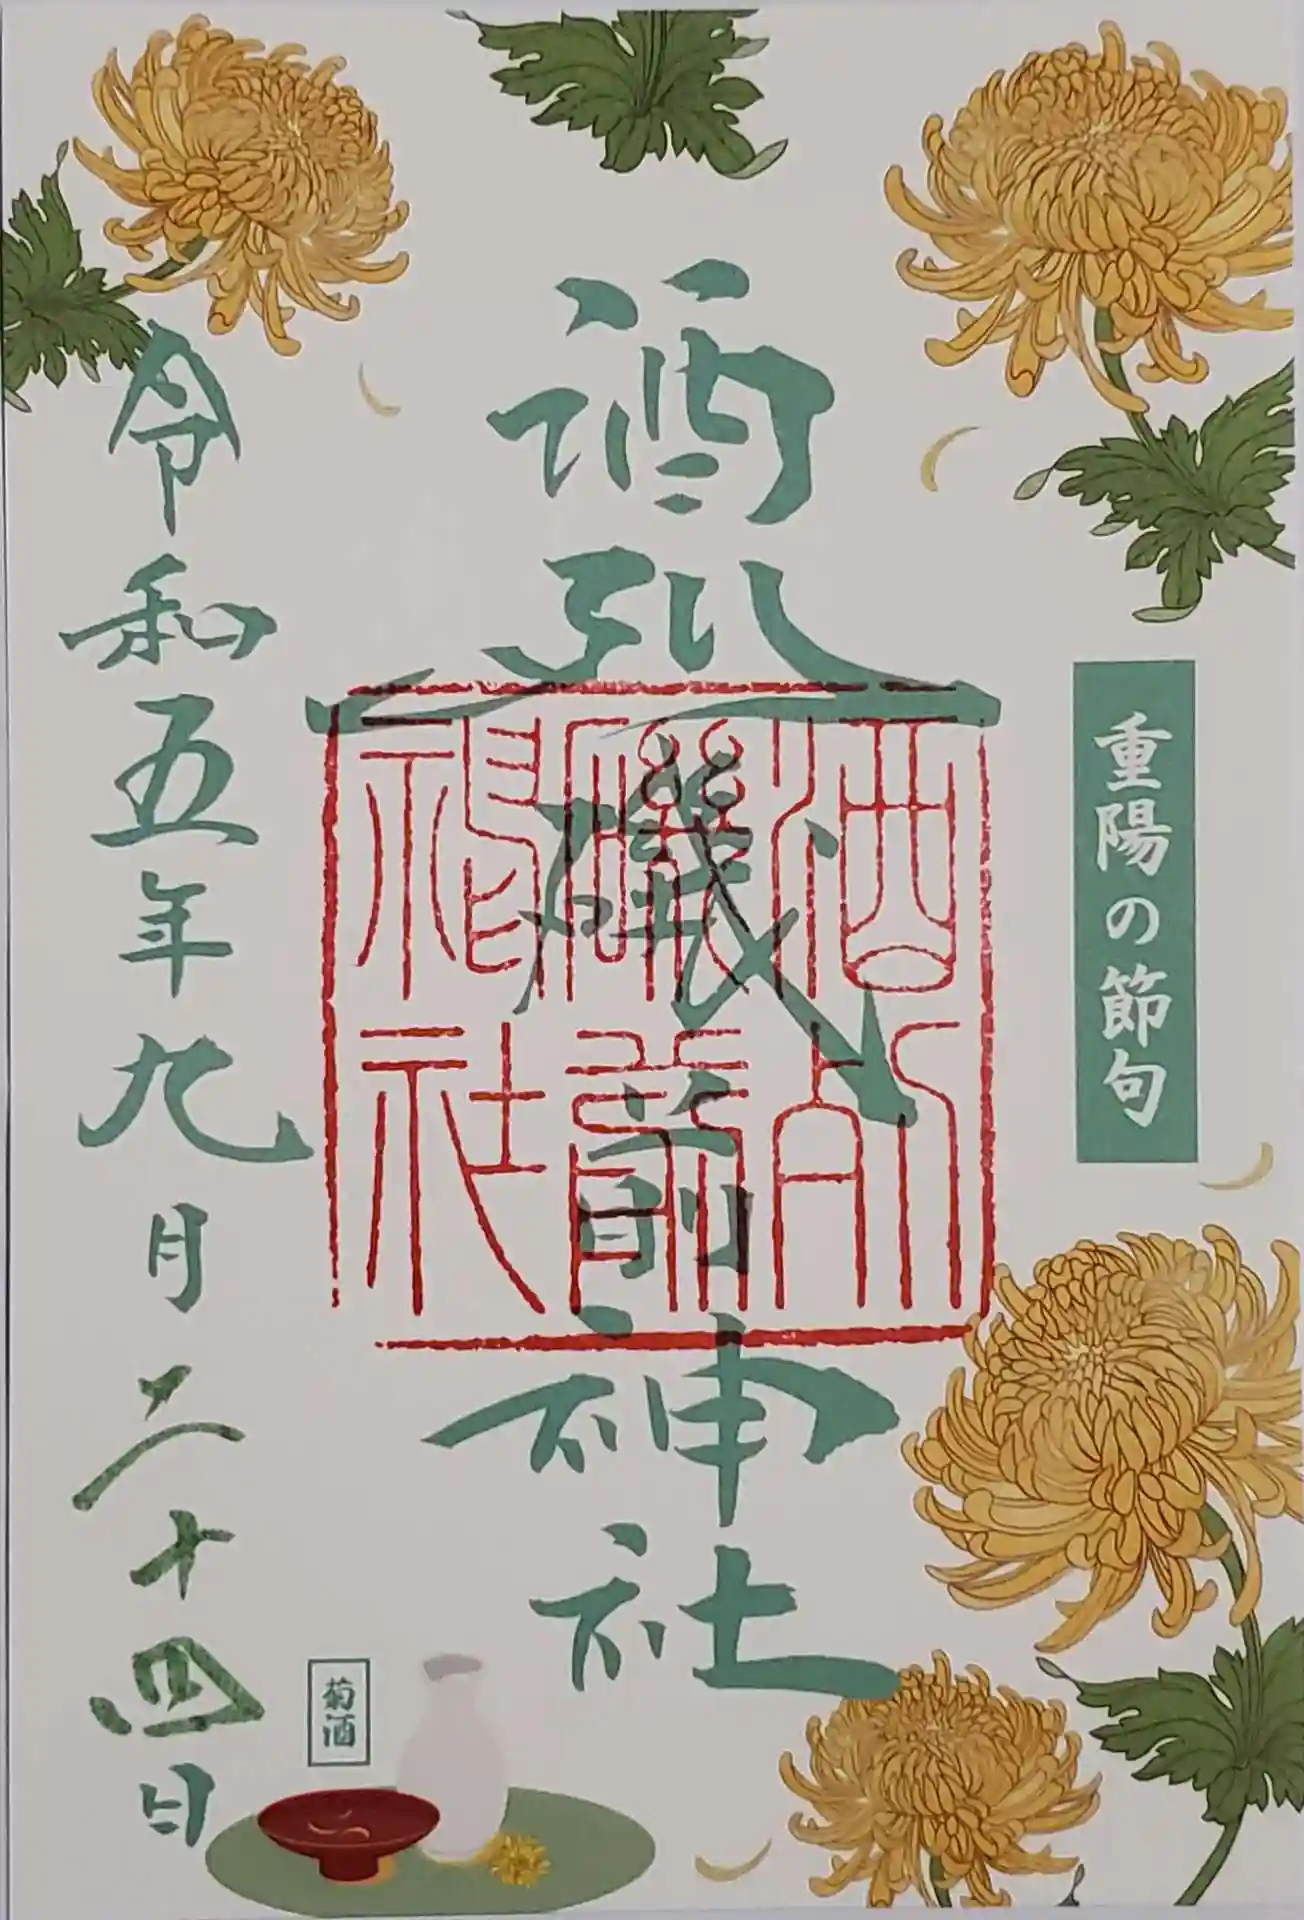 重陽の節句
酒列磯前神社
酒列
磯前
神社
菊酒
令和五年九月二十四日